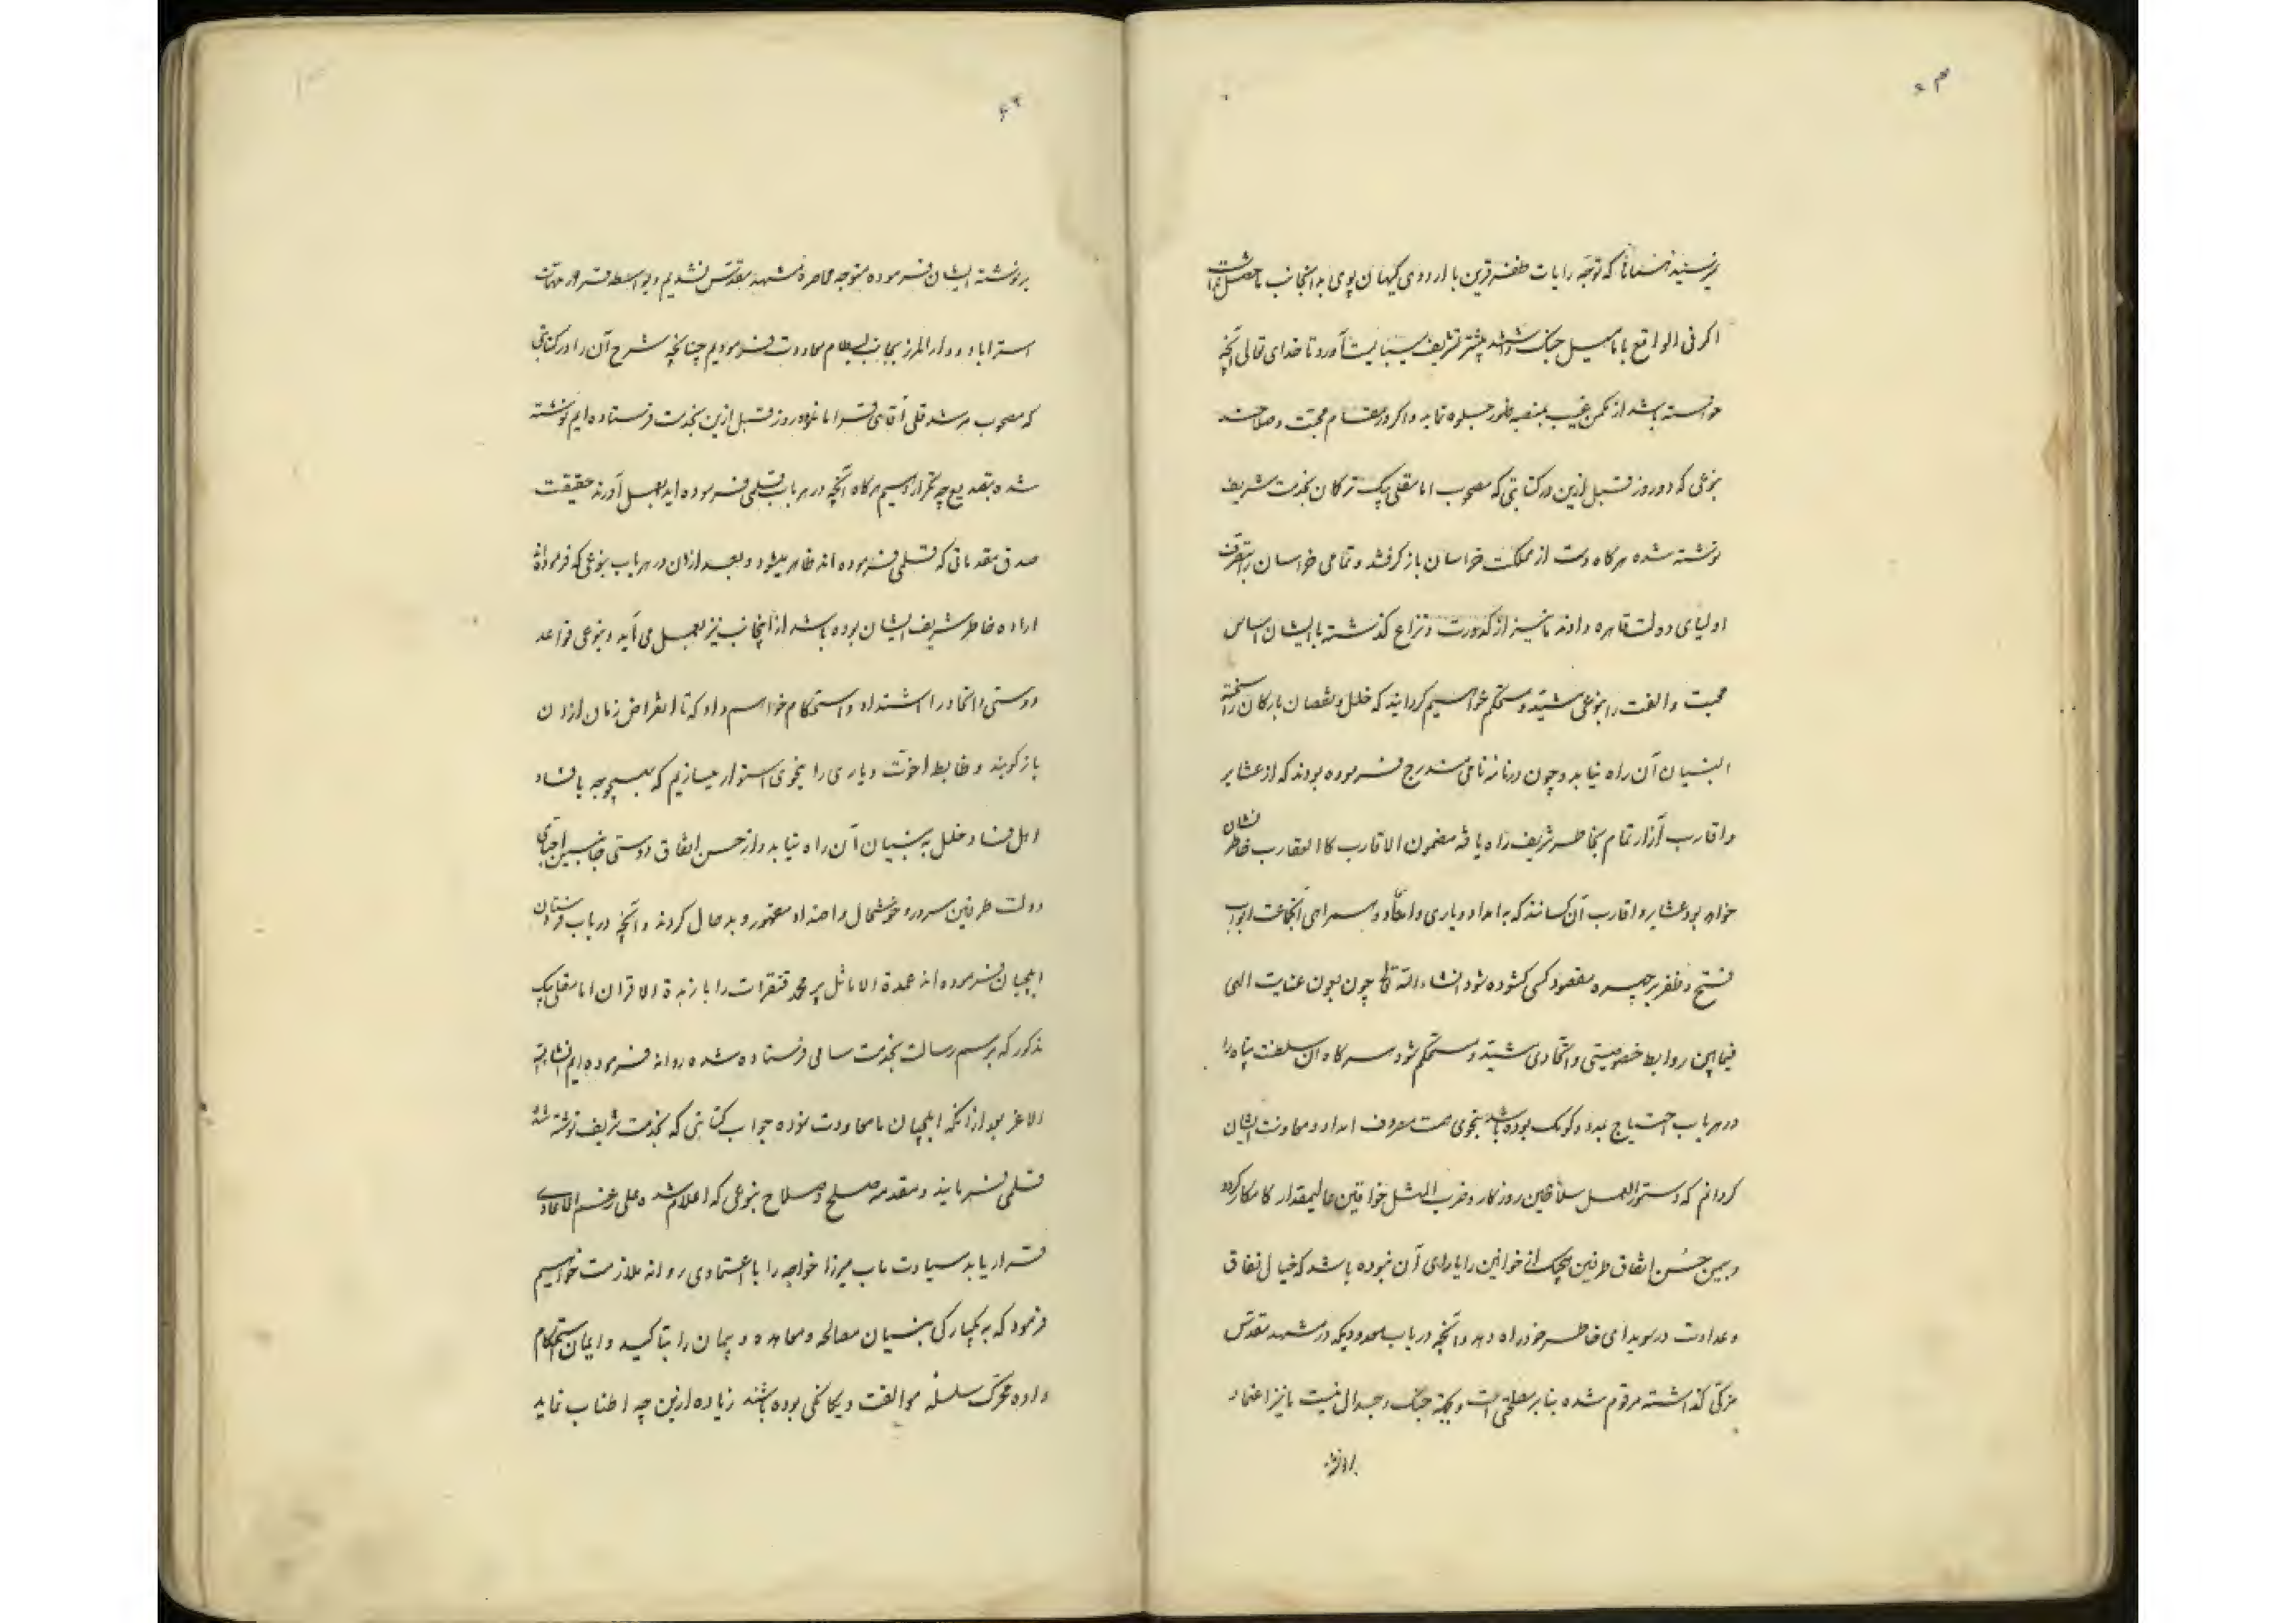 که توجه رایات ظفر قرین با اردوی کیهان پوی بدانجانب
اکر فی الواقع با ما میل جنک داشتند پیشتر تشریف میبایست آورد تا خدای تعالی آنچه
خواسته باشد از مکمن غیب بمنصه ظهور جلوه نماید و اکر در مقام محبت و صلاحند
بنوعی که دو روز قبل ازین در کتابتی که مصحوب امامقلی بیک ترکان بخدمت شریف
نوشته شده هرکاه دست از مملکت خراسان باز کرفتند و تمامی خراسان را بتصرف
اولیای دولت قاهره دادند ما نیز از کدورت و نزاع کذشته با ایشان اساس
محبت و الفت را بنوعی مشید و مستحکم خواهیم کردانید که خلل و نقصان بارکان
البنیان آن راه نیابد و چون در نامه نامی مندرج فرموده بودند که از عشایر
و اقارب آزار تمام بخاطر شریف راه یافته مضمون الاقارب کالعقارب خاطر نشان
خواهد بود عشایر و اقارب آن کسانند که به امداد و یاری و همراهی آنجماعت ابواب
فتح و ظفر بر چهره مقصود کسی کشوده شود انشاء الله تعالی چون بعون عنایت الهی
فیمابین روابط خصوصیتی و اتحادی مشید و مستحکم شود هرکاه آن سلطنت پناه را
در هر باب احتیاج بمدد و کومک بوده باشد بنحوی همت مصروف امداد و معاونت ایشان
کردانم که دستور العمل سلاطین روزکار و ضرب المثل خواقین عالیمقدار کامکار کردد
و بیمن حسن اتفاق طرفین هیچیک از خوانین را یارای آن نبوده باشد که خیال نفاق
و عداوت در سویدای خاطر خود راه دهد و آنچه در باب در مشهد مقدس
کذاشته مرقوم شده بنابر مصلحتی است و بجهة جنک و جدال نیست ما نیز اعتماد
بر نوشته
۶۴
بر نوشته ایشان فرموده متوجه محاصره مشهد مقدس نشدیم و بواسطه قرار مهمات
استراباد و دار المرز بجانب بسطام معاودت فرمودیم چنانچه شرح آن را در کتابتی
که مصحوب مرشد قلی آقای دو روز قبل ازین بخدمت فرستاده ایم نوشته
شده بتصدیع چه تکرار دهیم هرکاه آنچه در هر باب قلمی فرموده اید بعمل آورند حقیقت
صدق مقدماتی که قلمی فرموده اند ظاهر میشود و بعد از آن در هر باب بنوعی که فرموده اند
اراده خاطر شریف ایشان بوده باشد از اینجانب نیز بعمل می آید و بنوعی قواعد
دوستی و اتحاد را اشتداد و استحکام خواهیم داد که تا انقراض زمان از آن
باز کویند و ضابطه اخوت و یاری را بنحوی استوار میسازیم که بهیچوجه بافساد
اهل فساد خلل به بنیان آن راه نیابد و از حسن اتفاق دوستی جانبین احبای
دولت طرفین مسرور و خوشحال و اضداد مقهور و بدحال کردند و آنچه در باب فرستادن
ایلچیان فرموده اند عمدة الاماثل پیر محمد را با زبدة الاقران امامقلی بیک
مذکور که برسم رسالت بخدمت سامی فرستاده شده روانه فرموده ایم انشاء الله
الاعز بعد از آنکه ایلچیان ما معاودت نموده جواب کتابتی که بخدمت شریف نوشته شده
قلمی فرمایند و مقدمه صلح و صلاح بنوعی که اعلام شده علی رغم الاعادی
قرار یابد سیادت مآب میرزا خواجه را با اعتمادی روانه ملازمت خواهیم
فرمود که به یکبارکی بنیان مصالحه و معاهده و پیمان را بتاکید و ایمان استحکام
داده محرک سلسله موالفت و یکانکی بوده باشند زیاده ازین چه اطناب نماید